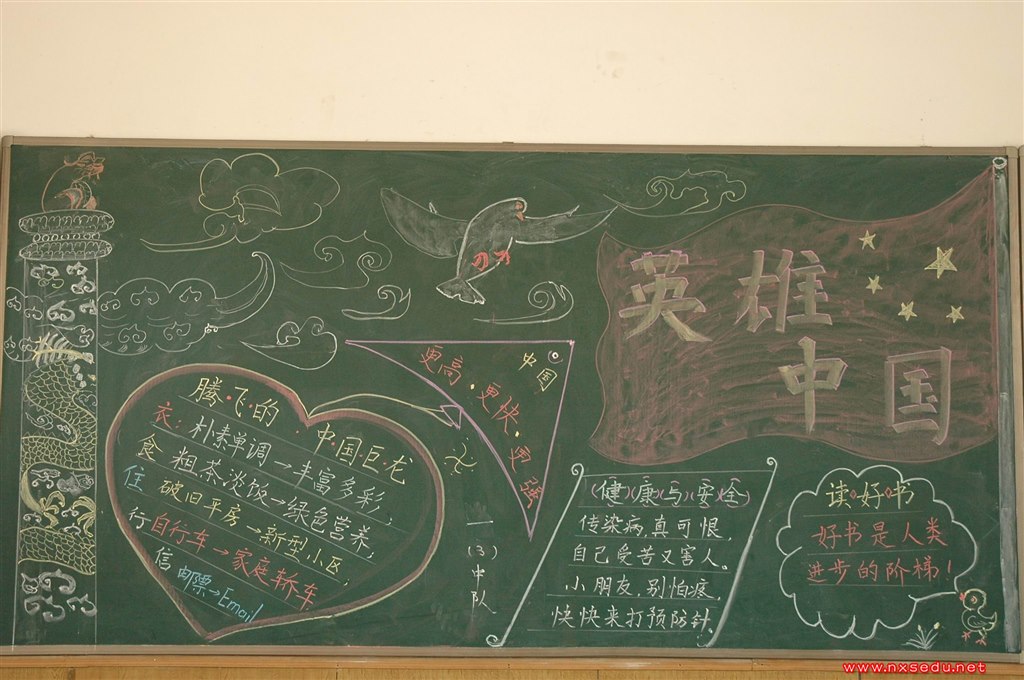 英雄
中国
腾·飞·的·中·国·巨·龙
衣:朴素单调→丰富多彩,
食 粗茶淡饭→绿色营养,
住 破旧平房→新型小区,
行 自行车→家庭轿车
信 邮票→Email
中国
更高·更快·更强
一(3)中队
(健康与安全)
传染病,真可恨,
自己受苦又害人。
小朋友,别怕疼,
快快来打预防针。
读·好·书
好书是人类
进步的阶梯!
www.nxsedu.net